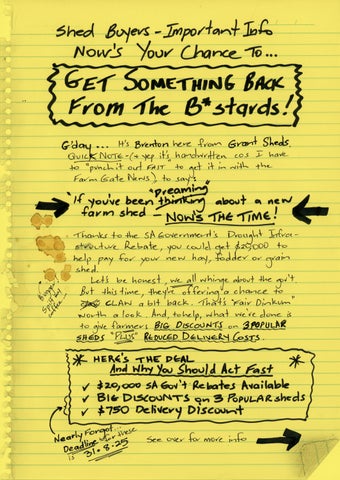 Shed Buyers - Important Info
Now's Your Chance To...
GET SOMETHING BACK
From The B*stards!
G'day... It's Brenton here from Grant Sheds.
QUICK NOTE - (& yep it's handwritten cos I have
to "punch it out FAST to get it in with the
Farm Gate News) to say:
"preaming"
If you've been thinking about a new
farm shed - NOW'S THE TIME!
Thanks to the SA Government's Drought Infra-
structure Rebate, you could get $20,000 to
help pay for your new hay, fodder or grain
shed.
Let's be honest, we all whinge about the gov't.
But this time, they're offering a chance to
CLAW a bit back. That's "Fair Dinkum"
worth a look. And, to help, what we're done is
to give farmers BIG DISCOUNTS on 3 POPULAR
SHEDS "PLUS" REDUCED DELIVERY COSTS.
Bugger
Spilt my
coffee
* HERE'S THE DEAL *
And Why You Should Act Fast
✓ $20,000 SA Gov't Rebates Available
✓ BIG DISCOUNTS on 3 Popular sheds
✓ $750 Delivery Discount
Nearly Forgot...
Deadline for these
is 31.8.25
See over for more info